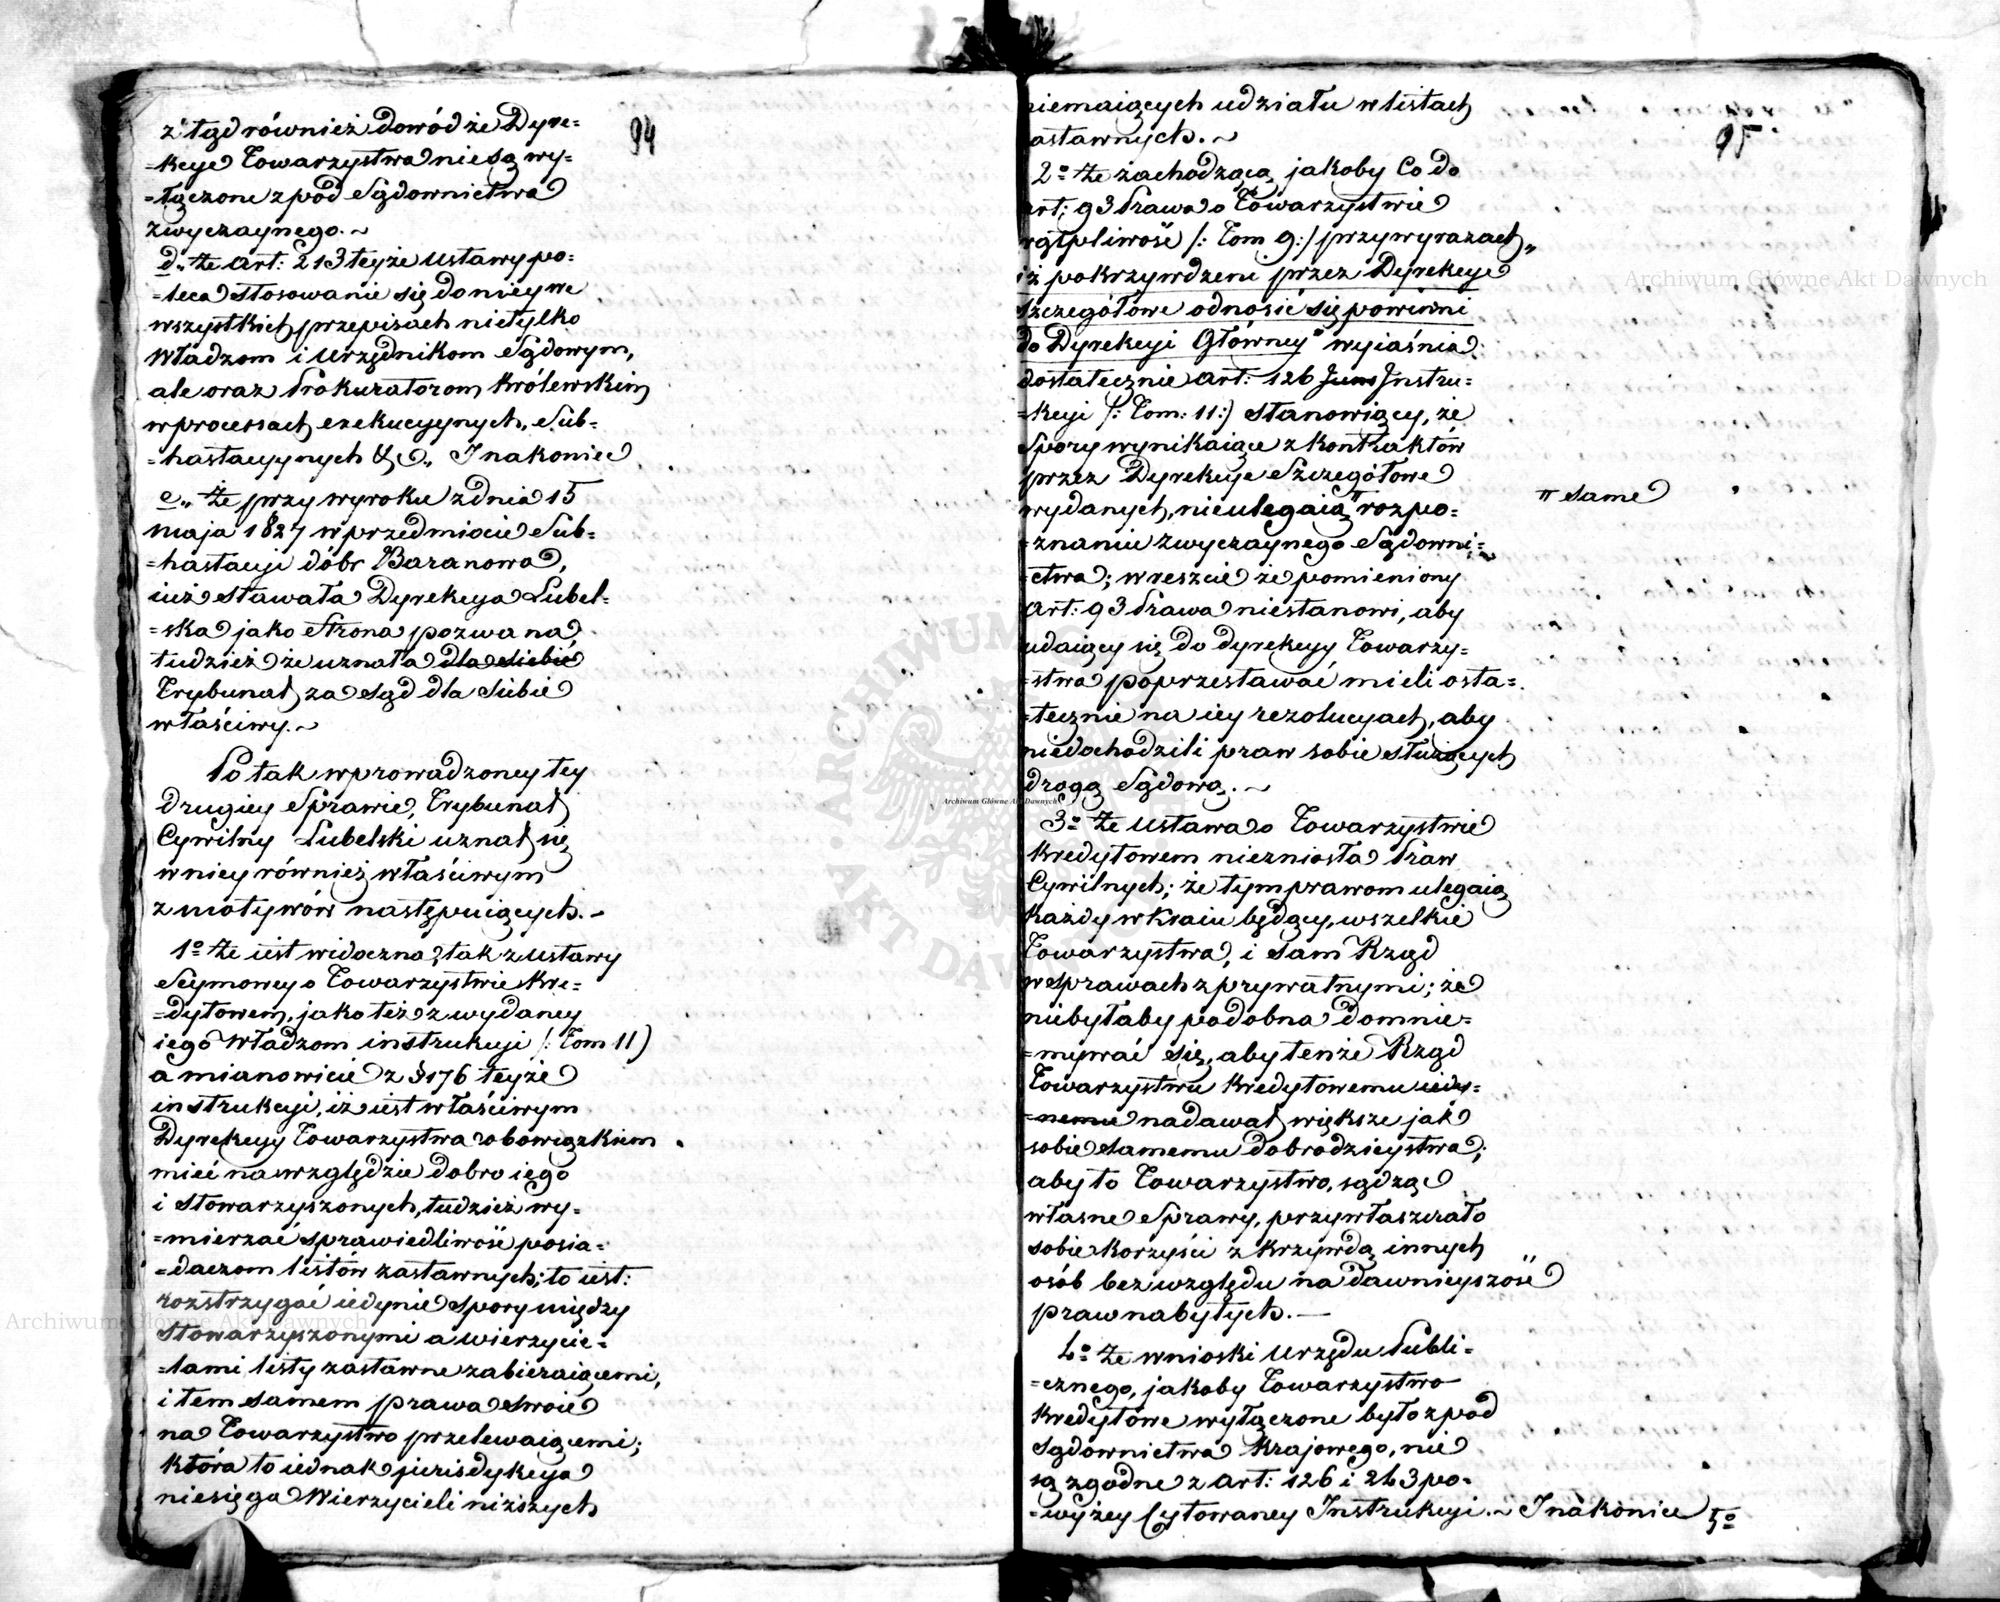 94
z tąd również dowód że Dyre=
=kcye Towarzystwa nie są wy=
=łączone z pod Sądownictwa
zwyczaynego.~
d„ Że art: 213 teyże ustawy po=
=leca stosowanie się do niey we
wszystkich przepisach nietylko
Władzom i Urzędnikom Sądowym,
ale oraz Prokuratorom Królewskim
w processach exekucyynych, Sub=
=hastacyynych &c„ Inakoniec
e„ Że przy wyroku z dnia 15
maja 1827 w przedmiocie Sub=
=hastacji dóbr Baranowa,
iuż stawała Dyrekcya Lubel=
=ska jako Strona pozwana,
tudzież że uznała dla siebie
Trybunał za Sąd dla Siebie
właściwy.~
Po tak wprowadzoney tey
drugiey Sprawie, Trybunał
Cywilny Lubelski uznał się
w niey również właściwym
z motywów następuiących.~
1º Że iest widoczna, tak z ustawy
Seymowey o Towarzystwie Kre=
=dytowem, jako też z wydaney
iego Władzom instrukcji /: Tom 11)
a mianowicie z § 176 teyże
instrukcyi, iż iest właściwym
Dyrekcyy Towarzystwa obowiązkiem
mieć na względzie dobro iego
i Stowarzyszonych, tudzież wy=
=mierzać sprawiedliwość posia=
=daczom listów zastawnych; to iest:
rozstrzygać iedynie spory między
Stowarzyszonymi a wierzycie=
=lami listy zastawne zabieraiącemi,
i tem samem prawa swoie
na Towarzystwo przelewaiącemi;
która to iednak jurisdykcya
niesięga Wierzycieli niższych
95
niemaiących udziału w listach
zastawnych.~
2º Że zachodzącą jakoby co do
art: 93 Prawa o Towarzystwie
wątpliwość /: Tom 9:/ przy wyrazach „
iż pokrzywdzeni przez Dyrekcye
szczegółowe odnosić się powinni
do Dyrekcyi Główney" wyiaśnia
dostatecznie art: 126 Instru=
=kcyi /: Tom: 11:) stanowiący, że
Spory wynikaiące z kontraktów
przez Dyrekcye Szczegółowe
wydanych, nieulegaią rozpo=
π same
=znaniu zwyczaynego Sądowni=
=ctwa; wreszcie że pomieniony
art: 93 Prawa niestanowi, aby
udaiący się do dyrekcyy Towarzy=
=stwa poprzestawać mieli osta=
=tecznie na iey rezolucyach, aby
niedochodzili praw sobie służących
drogą Sądową.~
3º Że Ustawa o Towarzystwie
Kredytowem niezniosła Praw
Cywilnych; że tym prawom ulegaią
każdy w kraiu będący, wszelkie
Towarzystwa, i sam Rząd
w Sprawach z prywatnymi; że
niebyłaby podobna domnie=
=mywać się, aby tenże Rząd
Towarzystwu Kredytowemu iedy=
=nemu nadawał większe jak
sobie samemu dobrodzieystwa;
aby to Towarzystwo, sądząc
własne Sprawy, przywłaszczało
sobie korzyści z krzywdą innych
osób bez względu na dawnieyszość
praw nabytych.—
4º Że wnioski Urzędu Publi=
=cznego, jakoby Towarzystwo
Kredytowe wyłączone było z pod
Sądownictwa Krajowego, nie
są zgodne z art: 126 i 263 po=
=wyżey Cytowaney Instrukcyi.~ Inakoniec 5º
Archiwum Główne Akt Dawnych
Archiwum Główne Akt Dawnych
Archiwum Główne Akt Dawnych